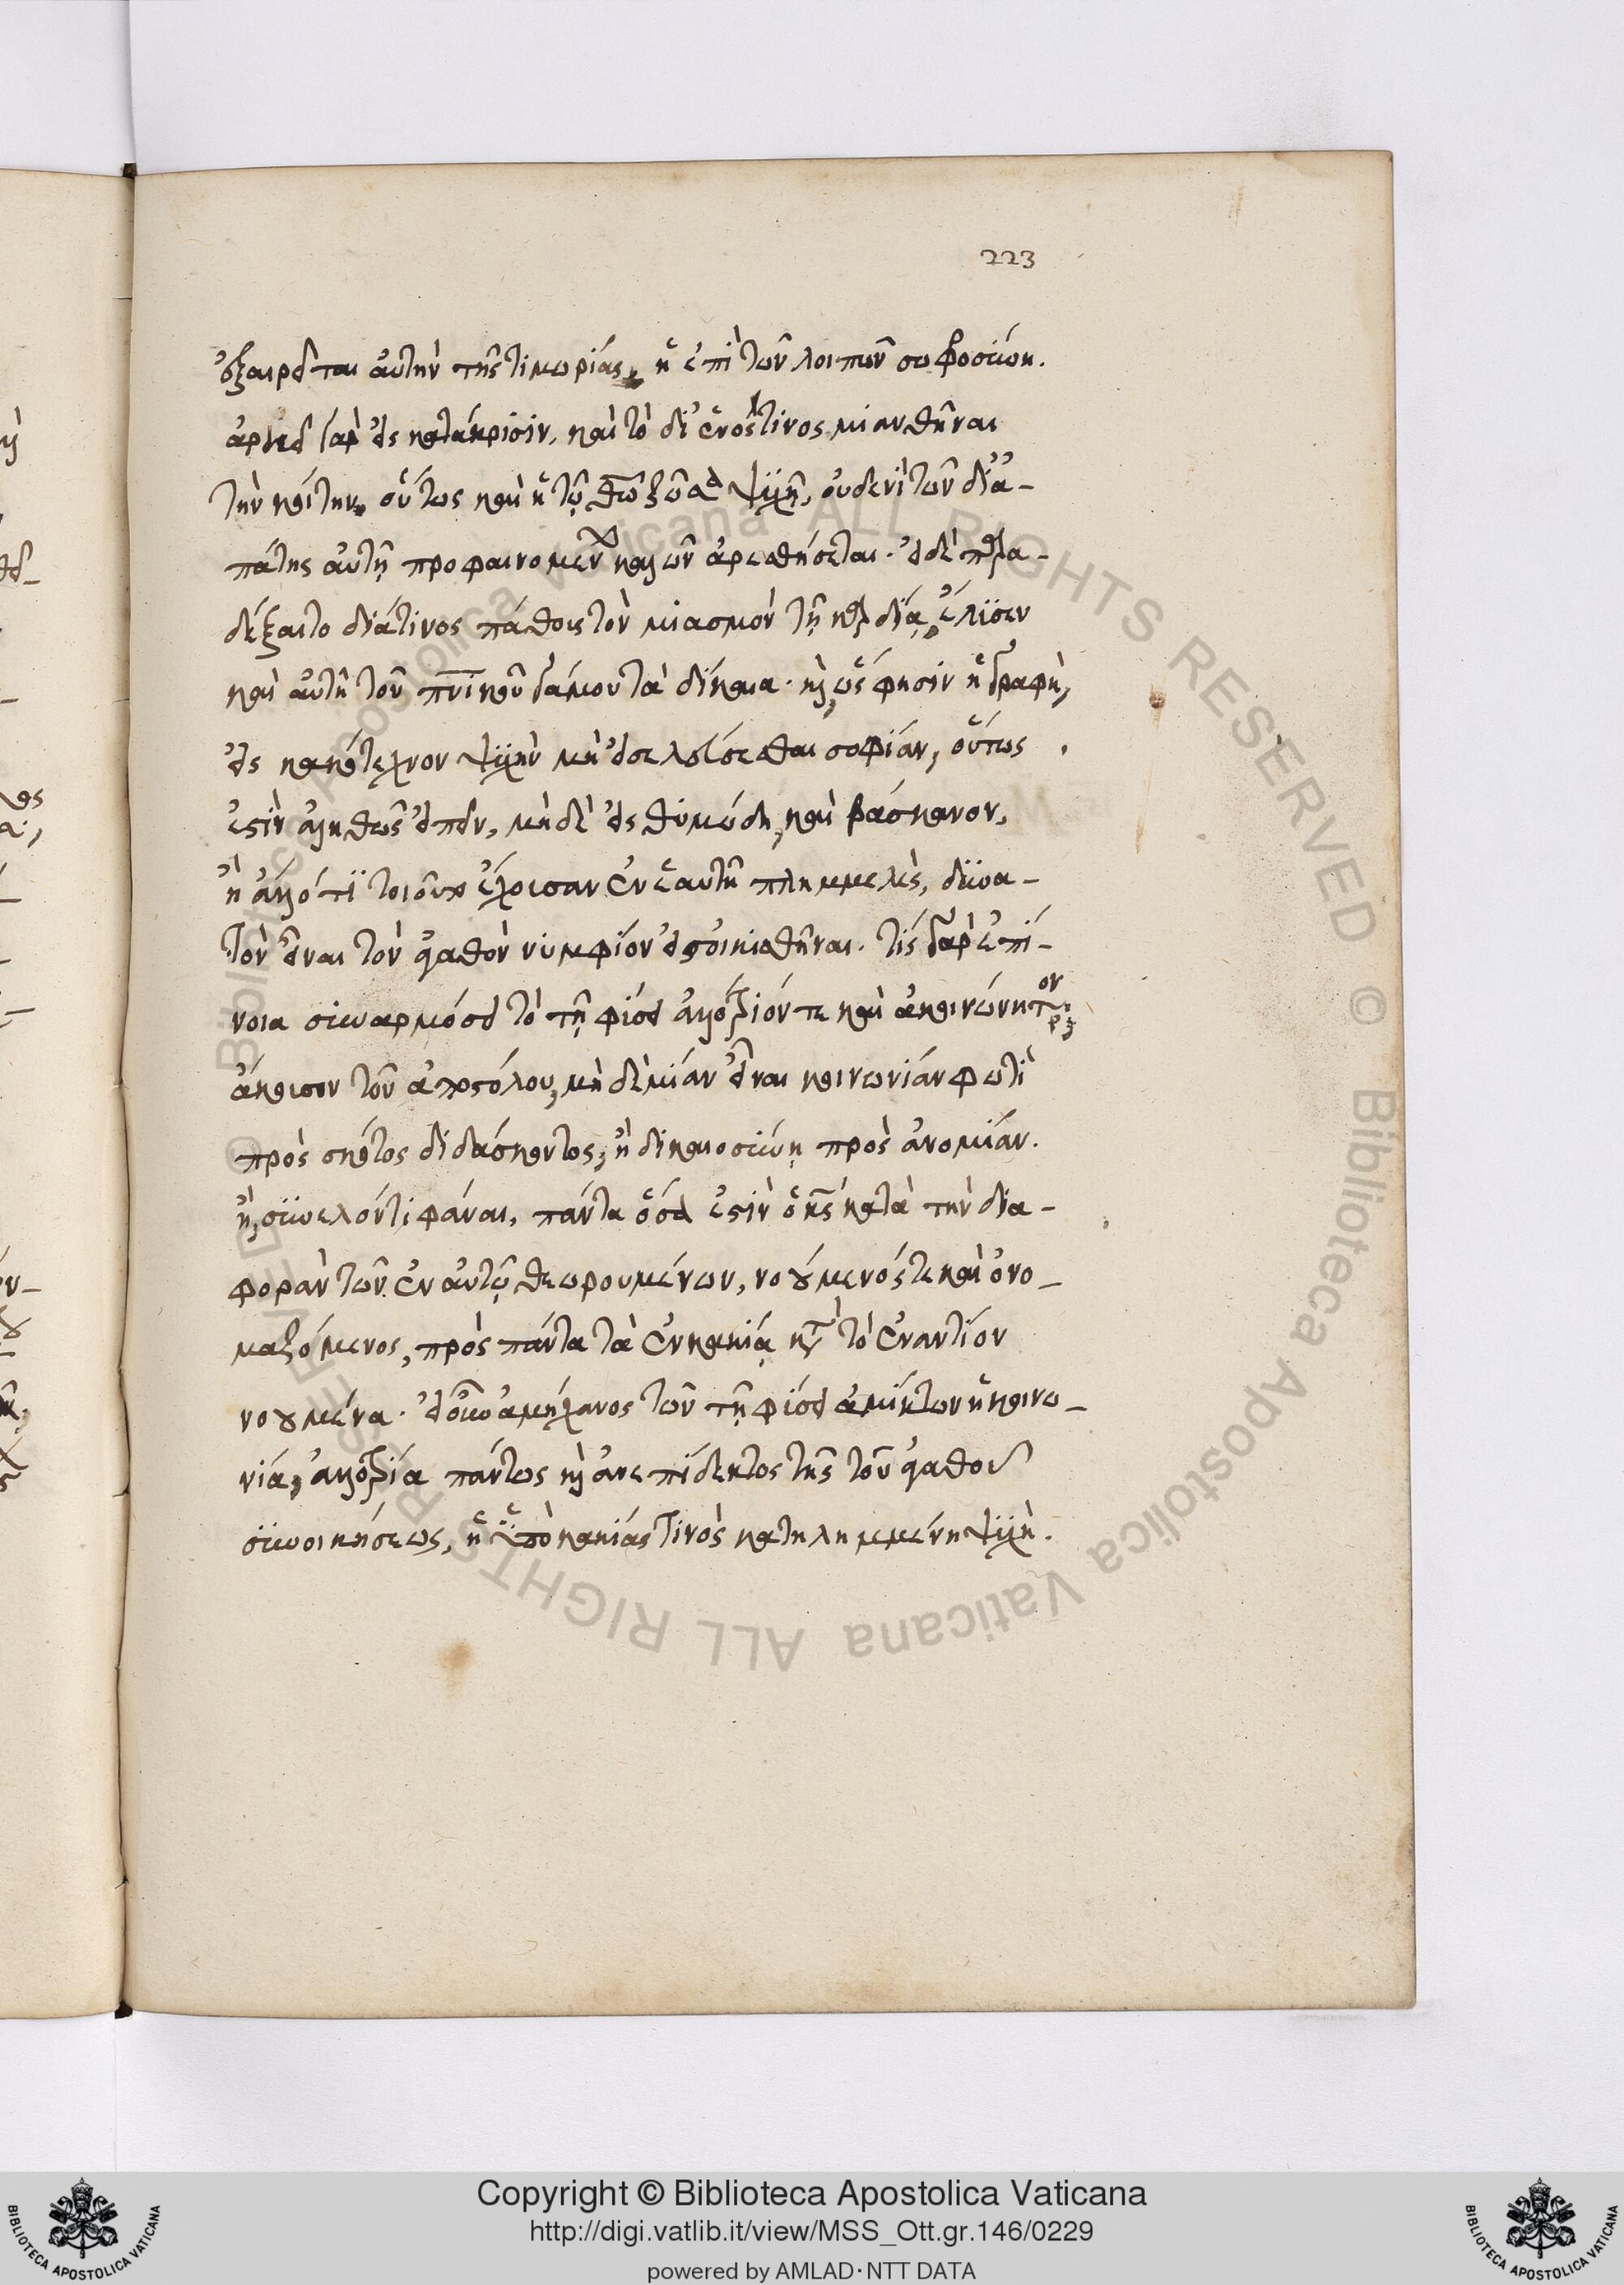 223
ἐξαιρεῖται αὐτὴν τῆς τιμωρίας, ἡ ἐπὶ τῶν λοιπῶν σωφροσύνη.
ἀρκεῖ γὰρ εἰς κατάκρισιν, καὶ τὸ δι' ἑνός τινος μιανθῆναι
τὴν κοίτην, οὕτως καὶ ἡ τῷ θῶ ζῶσα ψυχὴ, οὐδενὶ τῶν δι' ἀ-
πάτης αὐτῇ προφαινομένων καλῶν ἀρεσθήσεται. εἰ δὲ παρα-
δέξαιτο διά τινος πάθους τὸν μιασμὸν τῇ καρδίᾳ, ἔλυσεν
καὶ αὐτὴ τοῦ πνικοῦ γάμου τὰ δίκαια. καὶ, ὥς φησιν ἡ γραφὴ,
εἰς κακότεχνον ψυχὴν μὴ εἰσελεύσεσθαι σοφίαν, οὕτως
ἐστὶν ἀληθῶς εἰπεῖν, μηδὲ εἰς θυμώδη, καὶ βάσκανον,
ἢ ἄλλό τι τοιοῦτο ἔχουσαν ἐν ἑαυτῇ πλημμελὲς, δυνα-
τὸν εἶναι τὸν ἀγαθὸν νυμφίον εἰσοικισθῆναι. τίς γὰρ ἐπί-
νοια συναρμόσει τὸ τῇ φύσει ἀλλότριόν τε καὶ ἀκοινώνητον
ἄκουσον τοῦ ἀποστόλου, μηδεμίαν εἶναι κοινωνίαν φωτὶ
πρὸς σκότος διδάσκοντος, ἢ δικαιοσύνῃ πρὸς ἀνομίαν.
ἢ, συνελόντι φάναι, πάντα ὅσα ἐστὶν ὁ κς κατὰ τὴν δια-
φορὰν τῶν ἐν αὐτῷ θεωρουμένων, νοούμενός τε καὶ ὀνο-
μαζόμενος, πρὸς πάντα τὰ ἐν κακίᾳ κατὰ τὸ ἐναντίον
νοούμενα. εἰ οὖν ἀμήχανος τῶν τῇ φύσει ἀμίκτων ἡ κοινω-
νία, ἀλλοτρία πάντως καὶ ἀνεπίδεκτος τῆς τοῦ ἀγαθοῦ
συνοικήσεως, ἡ ὑπὸ κακίας τινὸς κατηλημμένη ψυχὴ.
© Biblioteca Apostolica Vaticana ALL RIGHTS RESERVED © Biblioteca Apostolica Vaticana ALL RIGHTS RESERVED
Copyright © Biblioteca Apostolica Vaticana
http://digi.vatlib.it/view/MSS_Ott.gr.146/0229
powered by AMLAD·NTT DATA
BIBLIOTECA APOSTOLICA VATICANA
BIBLIOTECA APOSTOLICA VATICANA